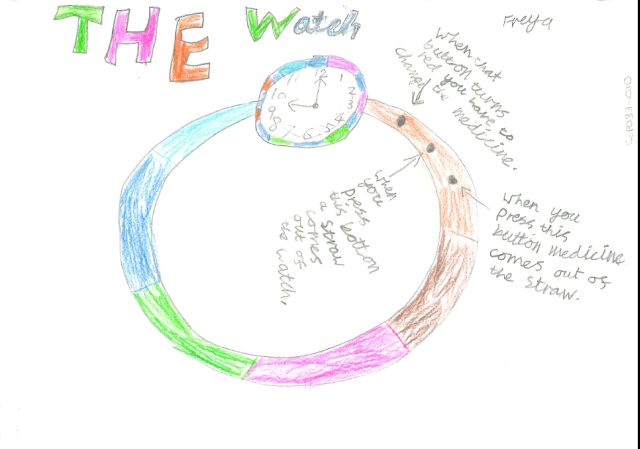 THE Watch
Freya
When that
button turns
red you have to
change the medicine.
12
1
2
3
4
5
6
7
8
9
10
11
when
you
press
this button
a straw
comes
out of
the watch.
when you
press this
button medicine
comes out of
the straw.